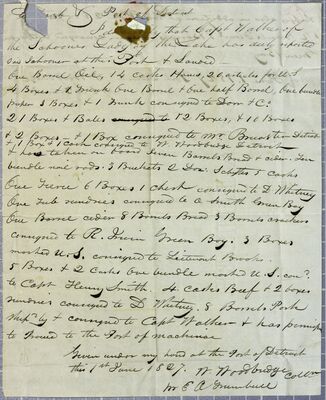 District & Port of Detroit
that Capt Walker of
the Schooner Lady of the Lake has duly reported
his Schooner at this Port & Landed
One Barrel Oil, 14 casks 20 articles
4 Boxes & 1 Trunk One Barrel & one half Barrel, One bundle
paper 3 Boxes & 1 Trunk consigned to Dorr & Co.
21 Boxes & Bales 12 Boxes, & 10 Boxes
& 2 Boxes & 1 Box consigned to Mr Brewster Detroit
& 1 Box & 1 Cask consigned to W. Woodbridge Detroit
& has taken on board seven Barrels Bread & cider. Ten
bundle nail rods. 3 Buckets 2 Doz. Scythes 5 casks
One Tierce 6 Boxes 1 chest consigned to D Whitney
One Tub sundries consigned to A Smith Green Bay
One Barrel cider 8 Barrels Bread 3 Barrels crackers
consigned to R. Irwin Green Bay. 3 Boxes
marked U.S. consigned to Lieutenant Brook.
5 Boxes & 2 Casks One bundle marked U.S. con.d
to Capt Henry Smith. 4 casks Beef & 2 boxes
sundries consigned to D Whitney. 8 Barrels Pork
Ship'd by & consigned to Capt Walker & has permission
to Proceed to the Port of Mackinac
Given under my hand at the Port of Detroit
this 1st June 1827. W Woodbridge Collr
pr E A Trumbull